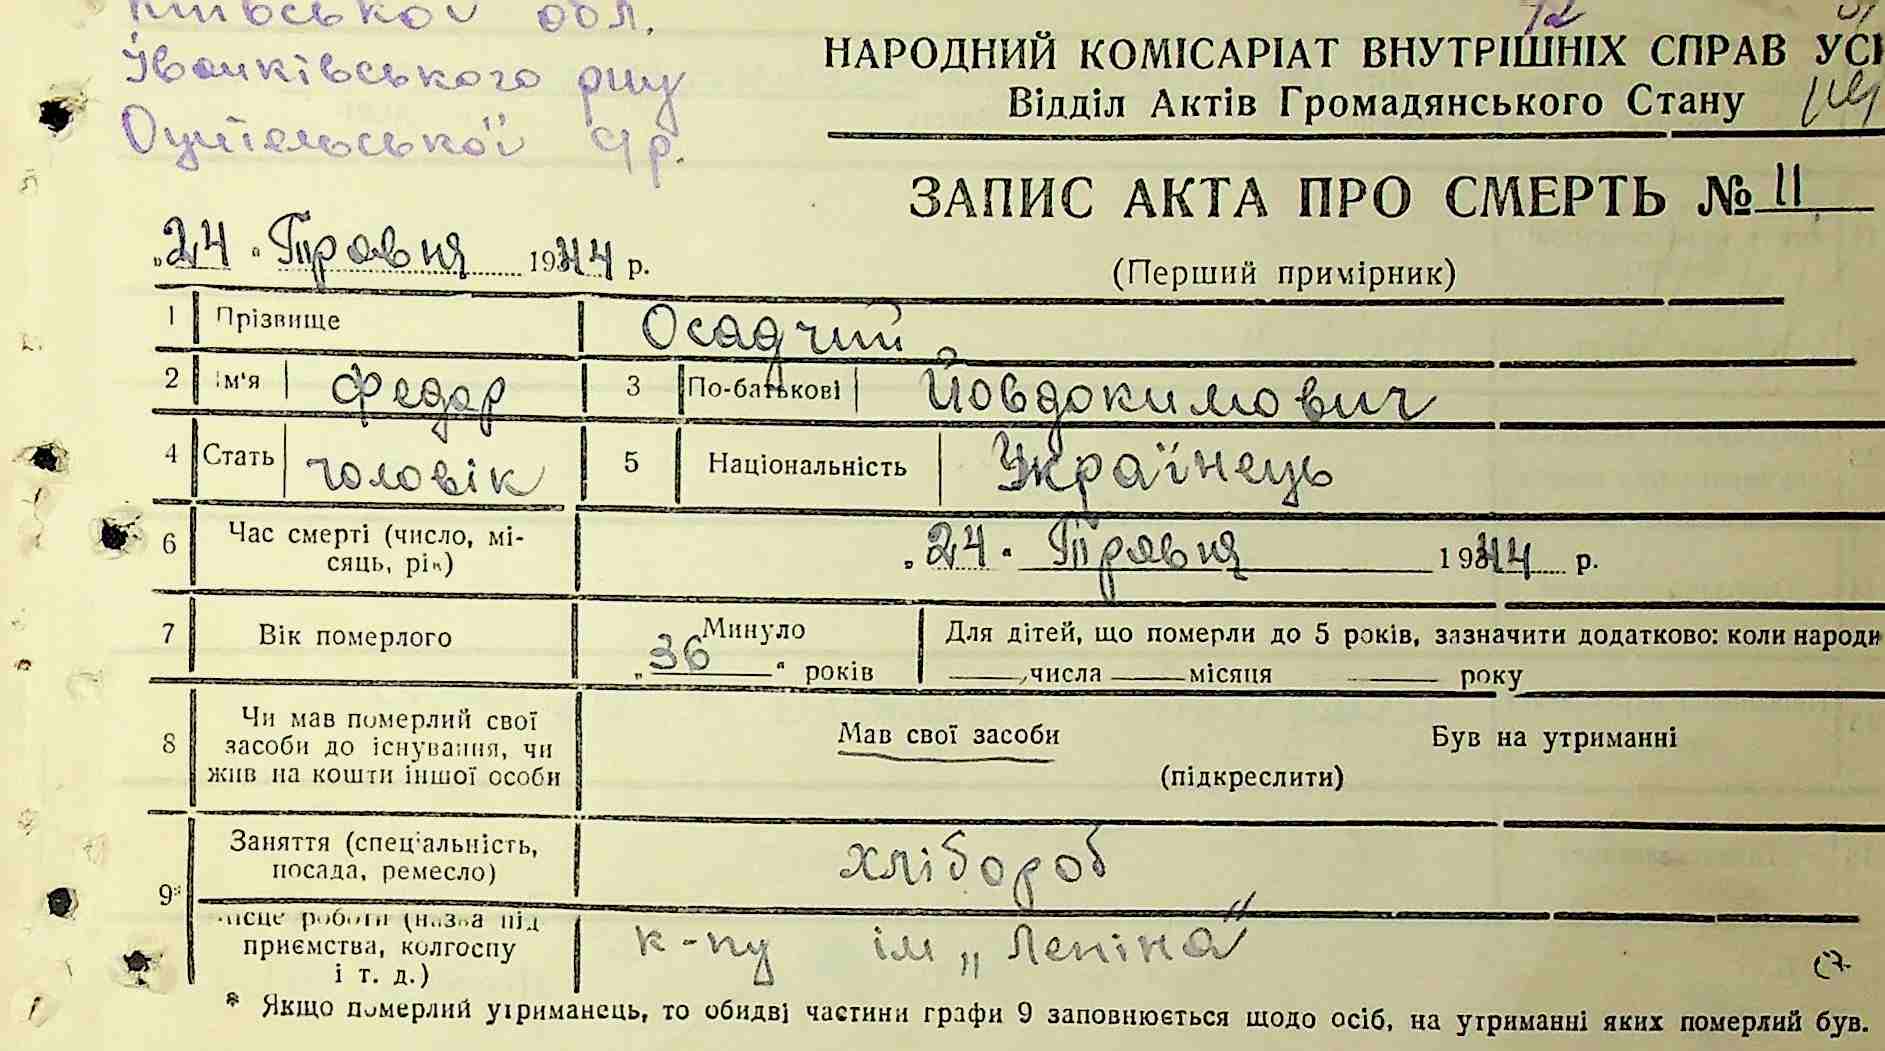 Київської обл.
Іванківського р-ну
Оцительської с/р.
НАРОДНИЙ КОМІСАРІАТ ВНУТРІШНІХ СПРАВ УСР
Відділ Актів Громадянського Стану
ЗАПИС АКТА ПРО СМЕРТЬ № 11
„24" Травня 1944 р.
(Перший примірник)
1 Прізвище Осадчий
2 Ім'я Федор 3 По-батькові Йовдокимович
4 Стать чоловік 5 Національність Українець
6 Час смерті (число, мі-
сяць, рік) „24" Травня 1944 р.
7 Вік померлого Минуло „36" років Для дітей, що померли до 5 років, зазначити додатково: коли народи
числа місяця року
8 Чи мав померлий свої
засоби до існування, чи
жив на кошти іншої особи
Мав свої засоби Був на утриманні
(підкреслити)
9* Заняття (спеціальність,
посада, ремесло) хлібороб
місце роботи (назва під
приємства, колгоспу
і т. д.) к-пу ім „Леніна"
* Якщо померлий утриманець, то обидві частини графи 9 заповнюється щодо осіб, на утриманні яких померлий був.